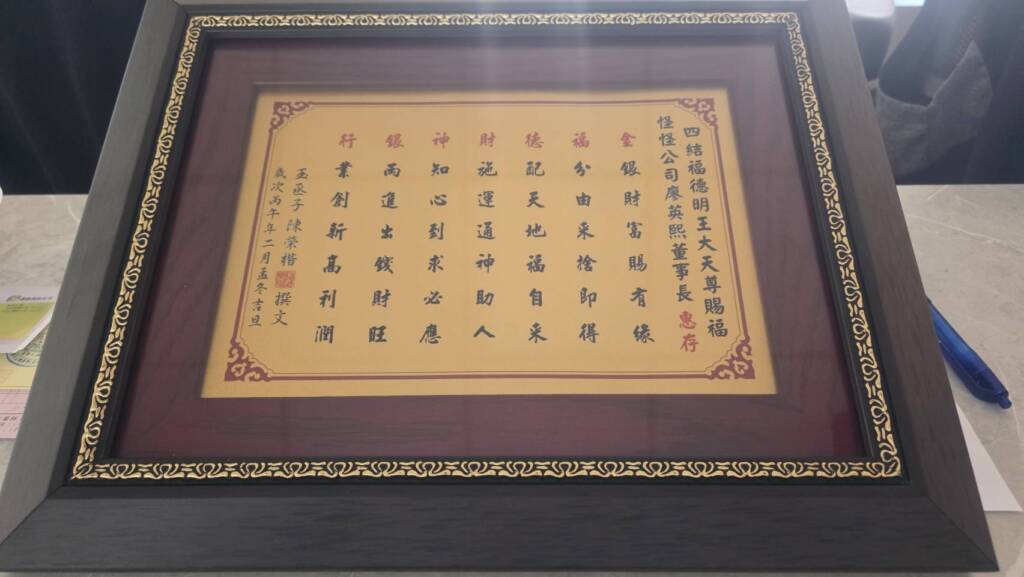 四結福德明王大天尊賜福
怪怪公司廖英熙董事長 惠存
金銀財富賜有緣
福分由采捨即得
德配天地福自采
財施運通神助人
神知心到求必應
銀兩進出錢財旺
行業創新高利潤
玉丞子 陳榮楷 撰文
歲次丙午年二月孟冬吉旦